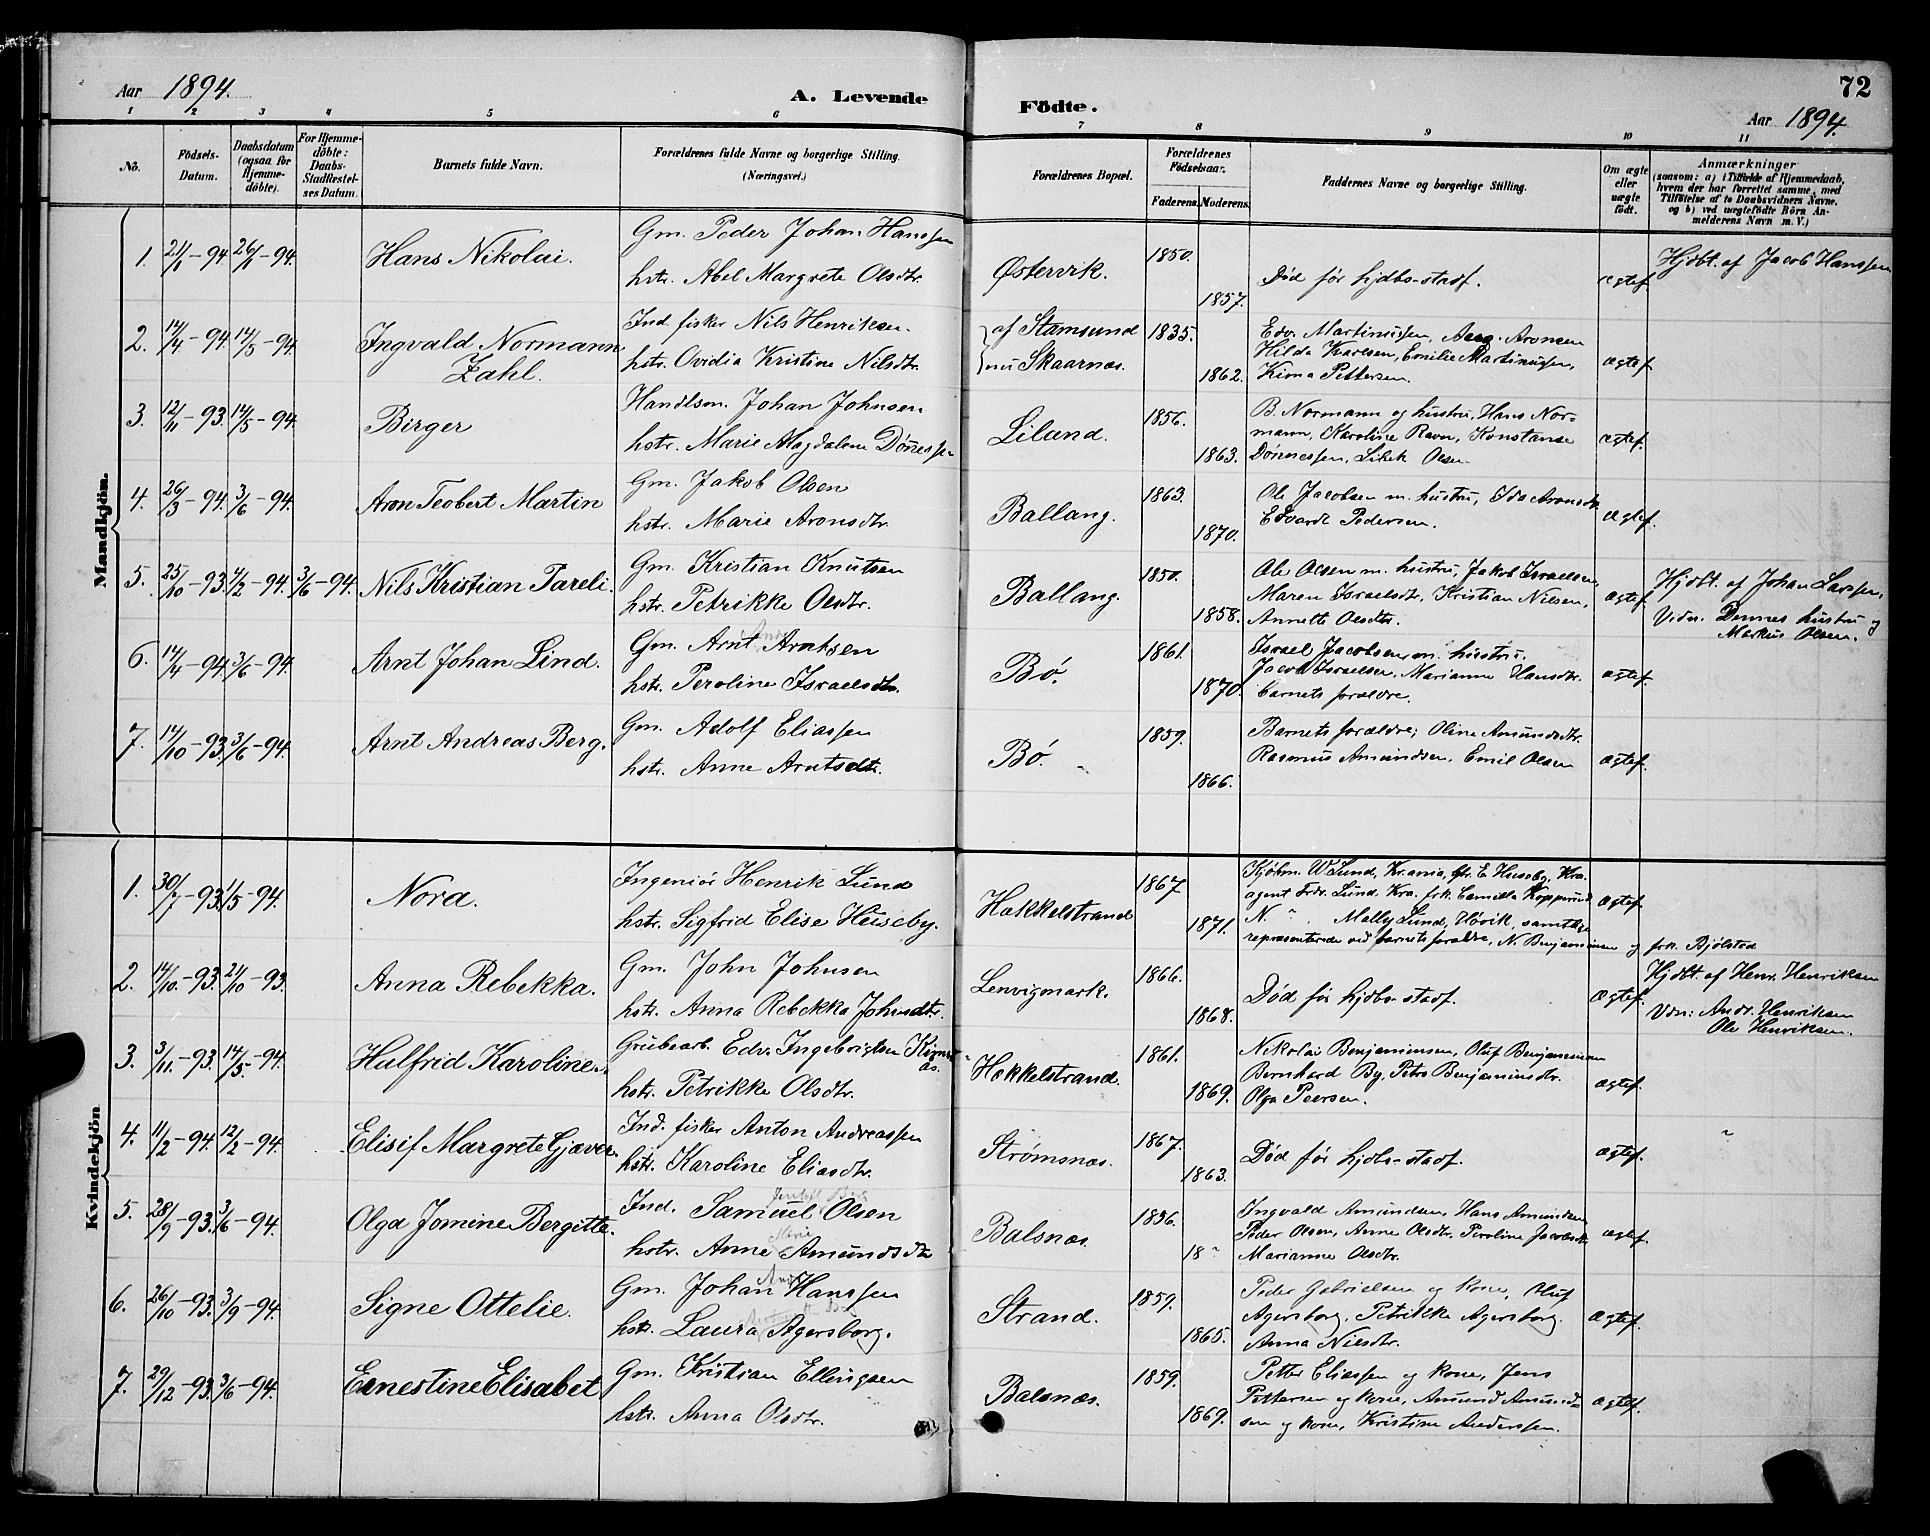 Aar 1894.
A. Levende Födte.
72
Aar 1894.
1 2 3 4 5 6 7 8 9 10 11
No.
Födsels-Datum.
Daabsdatum (ogsaa for Hjemme-döbte).
For Hjemme-döbte: Daabs-Stadfæstel-ses Datum.
Barnets fulde Navn.
Forældrenes fulde Navne og borgerlige Stilling. (Næringsvei.)
Forældrenes Bopæl.
Forældrenes Födselsaar.
Faderens. Moderens.
Faddernes Navne og borgerlige Stilling.
Om ægte eller uægte födt.
Anmærkninger
(saasom: a) i Tilfælde af Hjemmedaab,
hvem der har forrettet samme, med
Tilföielse af to Daabsvidners Navne.
og b) ved uægtefödte Börn An-
melderens Navn m. V.)
Mandkjön.
1. 21/1-94 26/1-94. Hans Nikolai. Gm. Peder Johan Hanssen
hstr. Abel Margrete Olsdtr. Østervik. 1850. 1857. Død før hjdbs-stadf. ægtef. Hjdbt. af Jacob Hanssen
2. 14/4-94 14/5-94. Ingvald Normann Zahl. Ind. fisker Nils Henriksen.
hstr. Ovidia Kristine Nilsdtr. af Stamsund nu Skaarnæs. 1835. 1862. Edv. Martinussen, Aronsen
Hilda Karlsen, Emilie Martinussen, Pettersen. ægtef.
3. 12/11-93. 14/5-94. Birger Handlsm. Johan Johnsen
hstr. Marie Magdalene Dønessen Liland. 1856. 1863. B. Normann og hustru, Hans Nor-
mann, Karoline Ravn, Konstanse
Dønnessen, Olsen ægtef.
4. 26/3-94. 3/6-94. Aron Teobert Martin Gm. Jakob Olsen
hstr. Marie Aronsdtr. Ballang. 1863. 1870. Ole Jacobsen m. hustru, Ida Aronsdtr
Edvardt Pedersen. ægtef.
5. 25/10-93. 4/2-94. 3/6-94. Nils Kristian Pareli. Gm. Kristian Knutsen
hstr. Petrikke Olsdtr. Ballang. 1850. 1858. Ole Olsen m. hustru, Jakob Israelsen,
Maren Israelsdtr, Kristian Nilsen,
Annette Olsdtr. ægtef. Hjdbt. af Johan Larssen,
Vidn. Dennes hustru og
Markus Olsen.
6. 14/4-94. 3/6-94. Arnt Johan Lind. Gm. Arnt Arntsen
hstr. Peroline Israelsdtr. Bø. 1861. 1870. Israel Jacobsen m. hustru.
Jacob Israelsen, Marianne Hansdtr.
barnets forældre. ægtef.
7. 14/10-93. 3/6-94. Arnt Andreas Berg. Gm. Adolf Eliassen
hstr. Anne Arntsdtr. Bø. 1859. 1866. Barnets forældre; Oline Amundsdtr.
Rasmus Amundsen, Emil Olsen ægtef.
Kvindekjön
1. 30/7-93. 1/5-94. Nora. Ingeniör Henrik Lund
hstr. Sigfrid Elise Huseby. Hækkelstrand 1867. 1871. Kjøbm. W Lund, Kr.ania, fr. E Huseby, Kra.
agent Frdr. Lund, Kra. frk. Camilla Kopperud
N. " . Mally Lund, Høvik, samtlige
repræsenterede ved barnets forældre, N. Benjaminsen og frk. Bjølstad ægtef.
2. 14/10-93. 21/10-93. Anna Rebekka. Gm. John Johnsen
hstr. Anna Rebekka Johnsdtr. Lenvigmark. 1866. 1868. Død før hjdbs-stadf. ægtef. Hjdbt. af Henr. Henriksen
Vdn: Andr. Henriksen
Ole Henriksen.
3. 3/11-93. 14/5-94. Halfrid Karoline. Grubearb. Edv. Ingebrigtsen
hstr. Petrikke Olsdtr. Hækkelstrand. 1861. 1869. Nikolai Benjaminsen, Oluf Benjaminsen
Bernhard By, Petra Benjaminsdtr.
Olga Peersen. ægtef.
4. 11/2-94. 12/2-94. Elisif Margrete Gjæver. Ind. fisker Anton Andreassen
hstr. Karoline Eliasdtr. Strømsnæs. 1867. 1863. Død før hjdbs-stadf. ægtef. "
5. 28/9-93. 3/6-94. Olga Jomine Bergitte. Ind. Samuel Olsen
Marie
hstr. Anne Amundsdtr Balsnæs. 1856. 18 " Ingvald Amundsen, Hans Amundsen,
Peder Olsen, Anne Olsdtr. Peroline Jacobsdtr
Marianne Olsdtr. ægtef.
6. 26/10-93. 3/9-94. Signe Ottelie. Gm. Johan Hanssen
hstr. Laura Agersborg. Strand. 1859. 1865. Peder Gabrielsen og kone, Oluf
Agersborg, Petrikke Agersborg.
Anna Nilsdtr. ægtef.
7. 29/12-93. 3/6-94. Ernestine Elisabet Gm. Kristian Ellingsen
hstr. Anna Olsdtr. Balsnæs. 1859. 1869. Petter Eliassen og kone, Jens
Pettersen og kone, Amund Amund-
sen og kone, Kristine Anderssen. ægtef.